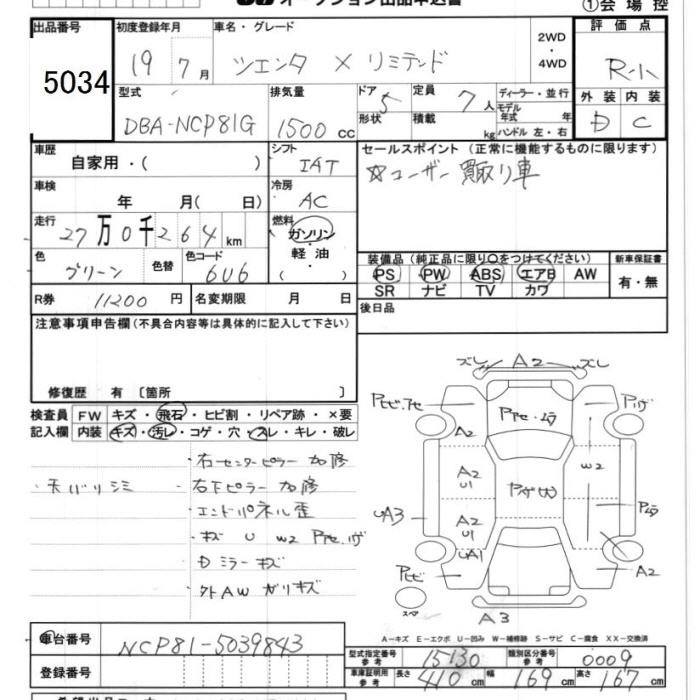 オークション出品申込書
①会場控
出品番号
5034
初度登録年月
19 7 月
車名・グレード
ツエンタ X リミテッド
2WD
・
4WD
評価点
R-小
外装 内装
D C
型式
DBA-NCP81G
排気量
1500 cc
ドア 5
形状
定員 7 人
積載 kg
ディーラー・並行
モデル
年式 年
ハンドル 左・右
車歴
自家用・( )
シフト
IAT
車検
年 月( 日)
冷房
AC
走行
27万0千264 km
燃料
ガソリン
・
軽油
( )
色
グリーン
色替
色コード
6U6
R券 11200 円
名変期限 月 日
セールスポイント (正常に機能するものに限ります)
☆ユーザー買取り車
装備品 (純正品に限り○をつけてください)
PS PW ABS エアB AW
SR ナビ TV カワ
新車保証書
有・無
後日品
注意事項申告欄(不具合内容等は具体的に記入して下さい)
修復歴 有〔箇所 〕
検査員
記入欄
FW キズ・飛石・ヒビ割・リペア跡・×要
内装 キズ・汚レ・コゲ・穴・スレ・キレ・破レ
・右センターピラー 加修
・天バリシミ
・右下ピラー 加修
・エンドパネル歪
・キズ U W2 Pヤセ.ハゲ
・Dミラーキズ
・外AW ガリキズ
ズレ A2 ズレ
Pヒビ.アセ
Pアセ・ムラ
Pハゲ
A2
A2
U1
W2
Pハゲ(大)
UA3
A2
U1
Pムラ
UA1
Pヒビ
A2
スペア
A3
A−キズ E−エクボ U−凹み W−補修跡 S−サビ C−腐食 XX−交換済
車台番号
NCP81-5039843
登録番号
型式指定番号
参考
15130
類別区分番号
参考
0009
車庫証明用
参考
長さ 410 cm 幅 169 cm 高さ 167 cm